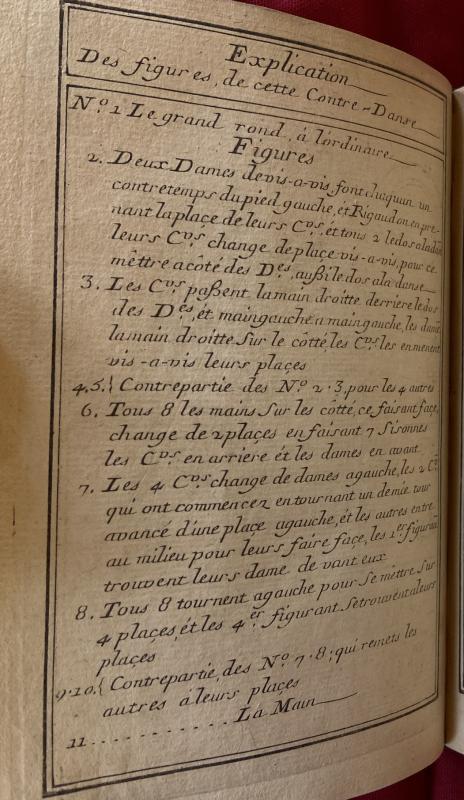 Explication
Des figures, de cette Contre-Danse
N.º 1 Le grand rond, á l'ordinaire
Figures
2. Deux Dames de vis-a-vis, font chaquun un
contretemps du pied gauche, ét Rigaudon en pre-
nant la place de leurs C.vs, ét tous 2 le dos a la dan
leurs C.vs change de place vis-a-vis, pour ce
mêttre acôté des D.es, aussi le dos ala danse
3. Les C.vs passent la main droitte derriere le dos
des D.es, ét main gauche a main gauche, les dam
la main droitte Sur le côtté, les C.vs les enmenent
vis-a-vis leurs places
4.5. { Contrepartie des N.º 2.3, pour les 4 autres
6. Tous 8 les mains Sur les côtté, ce faisant face,
change de 2 places en faisant 7 Sisonnes
les C.vs en arriere ét les dames en avant
7. Les 4 C.vs change de dames agauche, les 2 C.rs
qui ont commencez en tournant un demie tour
avancé d'une place agauche, ét les autres entre
au milieu pour leurs faire face, les 1.er figuran
trouvent leurs dame de vant eux
8. Tous 8 tournent agauche pour Se mêttre Sur
4 places, ét les 4.er figurant Se trouvent aleurs
places
9.10. { Contrepartie, des N.º 7.8; qui remets les
autres á leurs places
11 . . . . . . . . . . . La Main